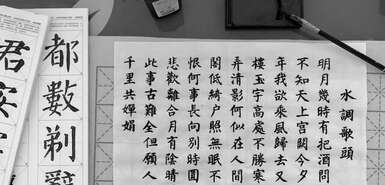 水調歌頭
明月幾時有把酒問
不知天上宮闕今夕
年我欲乘風歸去又
樓玉宇高處不勝寒
弄清影何似在人間
閣低綺戶照無眠不
恨何事長向別時圓
悲歡離合月有陰晴
此事古難全但願人
千里共嬋娟
都數剃辭
君